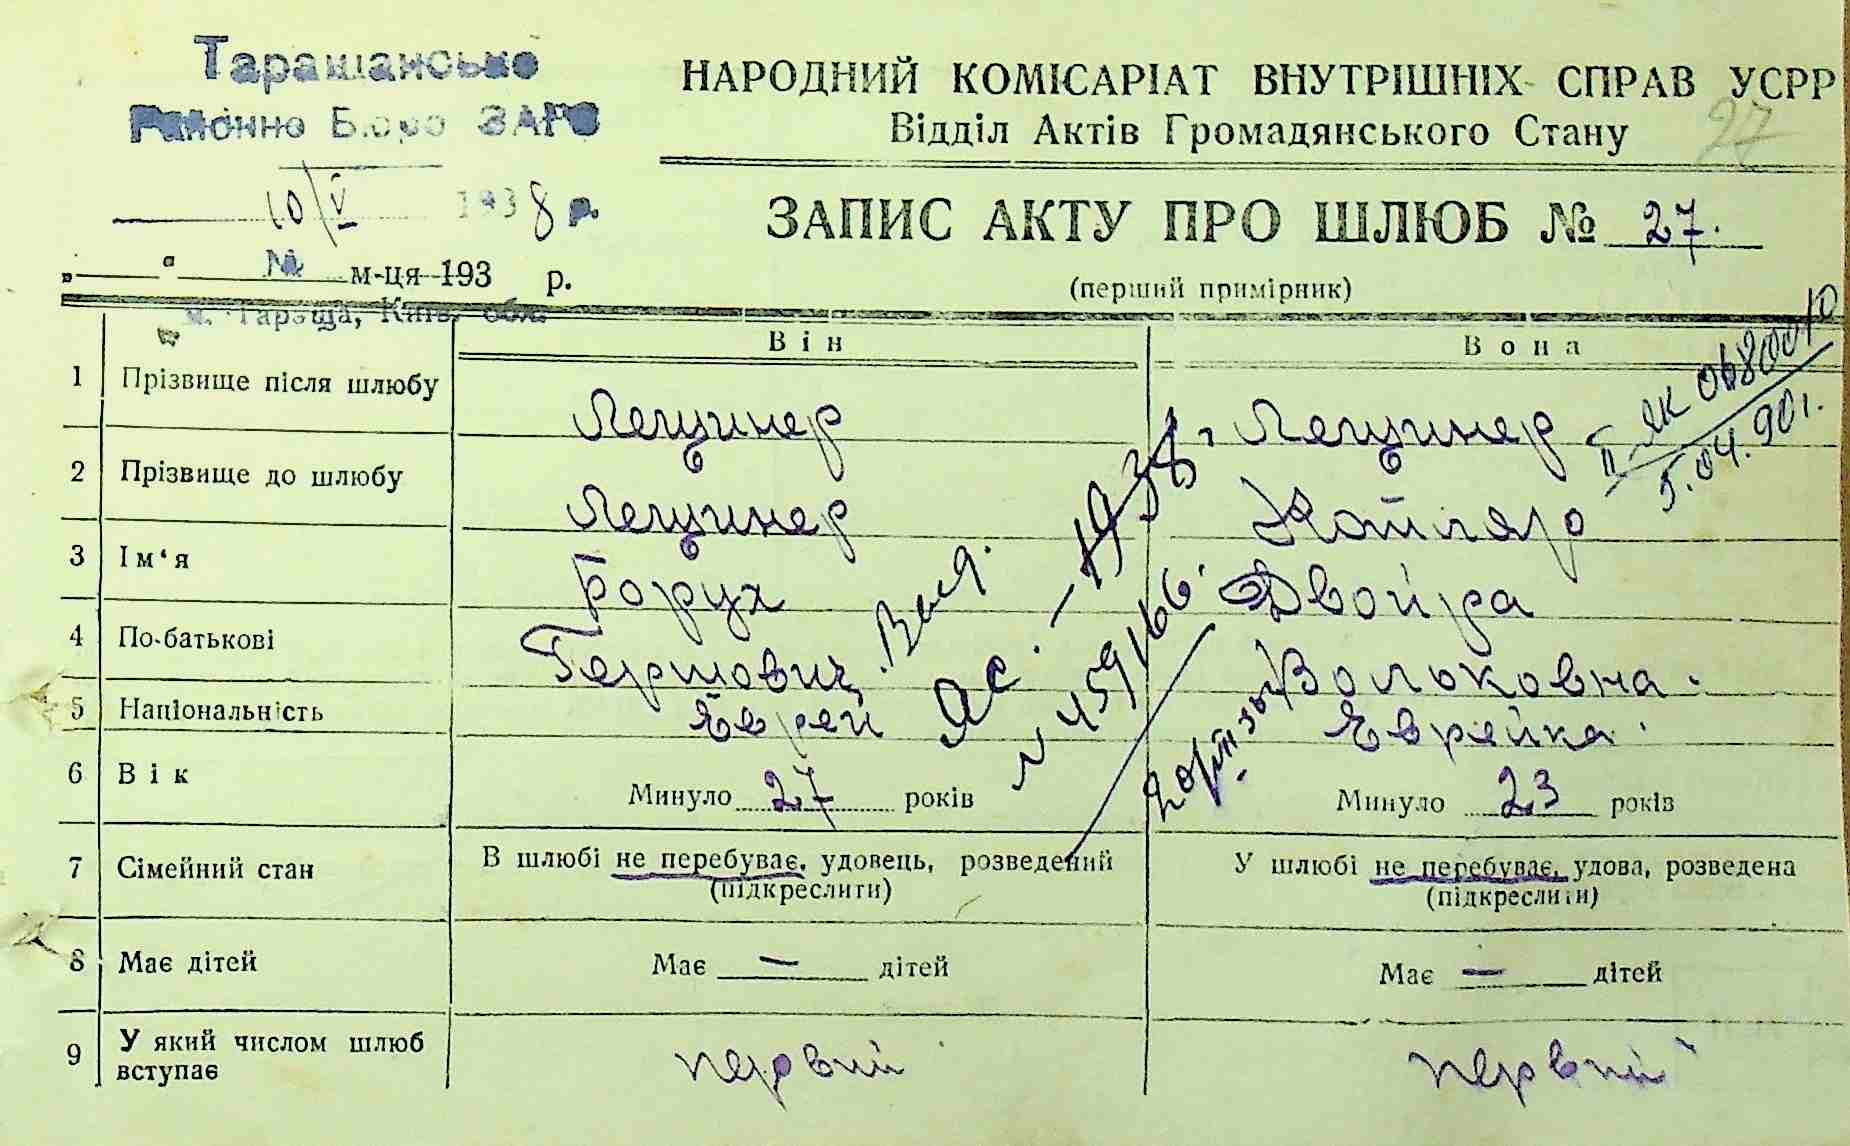 Таращанське
Районне Бюро ЗАГС
10/V 1938 р.
„ “ м-ця 193 р.
м. Тараща, Київ. обл.
НАРОДНИЙ КОМІСАРІАТ ВНУТРІШНІХ СПРАВ УСРР
Відділ Актів Громадянського Стану
27
ЗАПИС АКТУ ПРО ШЛЮБ № 27.
(перший примірник)
Він Вона
1 Прізвище після шлюбу Лещинер Лещинер
2 Прізвище до шлюбу Лещинер Котляр
3 Ім‘я Борух Двойра
4 По-батькові Гершович Вольковна
5 Національність Єврей Єврейка
6 Вік Минуло 27 років Минуло 23 років
7 Сімейний стан В шлюбі не перебуває, удовець, розведений У шлюбі не перебуває, удова, розведена
(підкреслити) (підкреслити)
8 Має дітей Має — дітей Має — дітей
9 У який числом шлюб вступає первий первий
Выд.
ЯС - 1938 г.
N 459166
II ЯК 068001
5.04.90г.